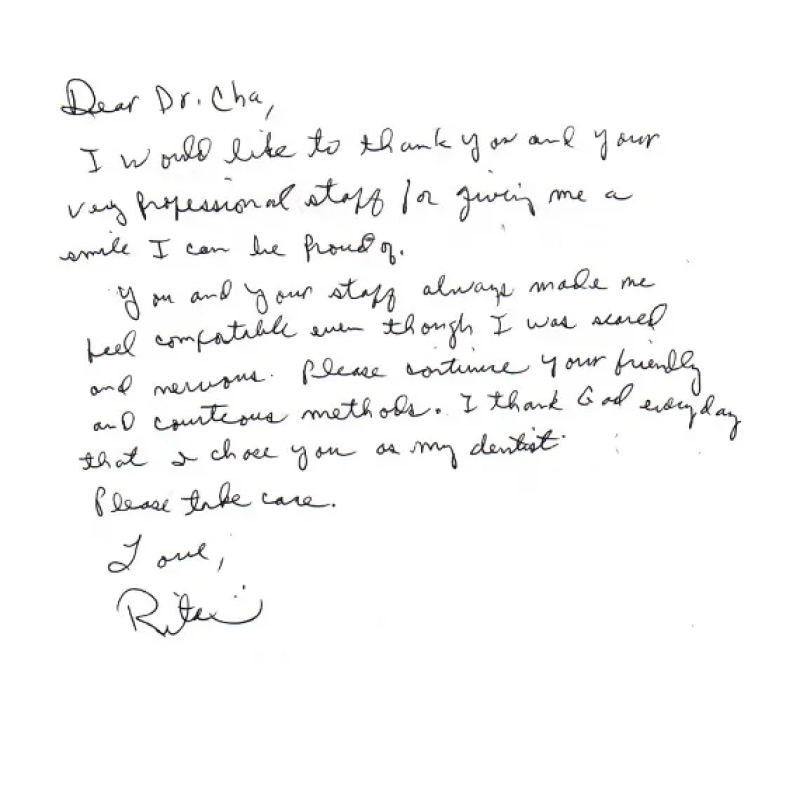 Dear Dr. Cha,
I would like to thank you and your
very professional staff for giving me a
smile I can be proud of.
You and your staff always made me
feel comfortable even though I was scared
and nervous. Please continue your friendly
and courteous methods. I thank God everyday
that I chose you as my dentist.
Please take care.
Love,
Rita